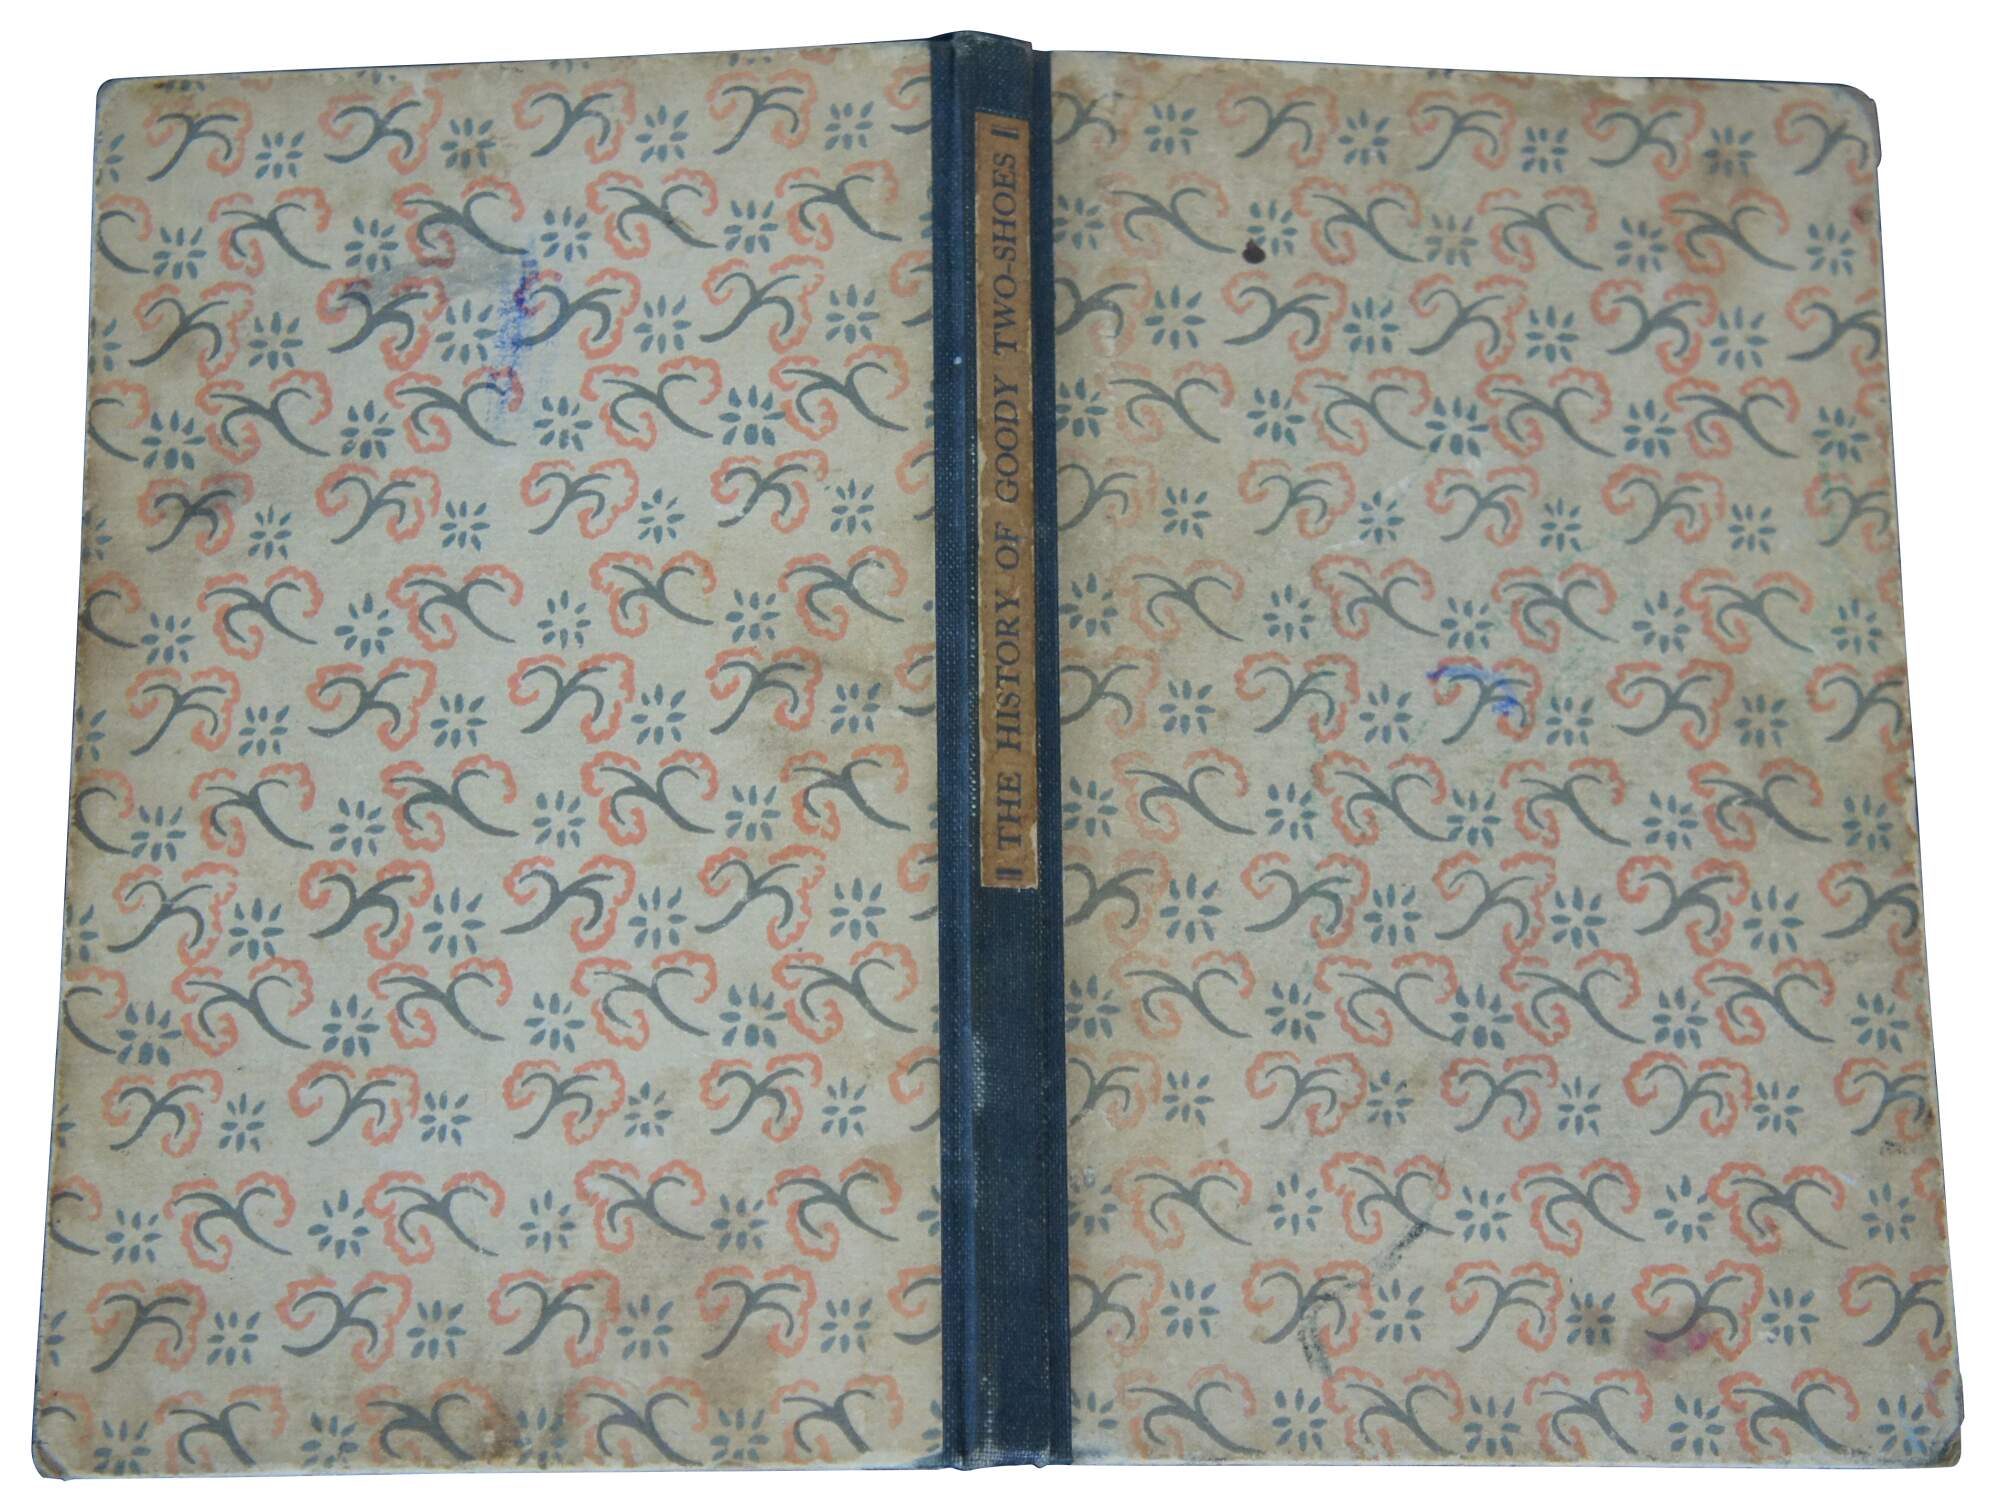 THE HISTORY OF GOODY TWO-SHOES